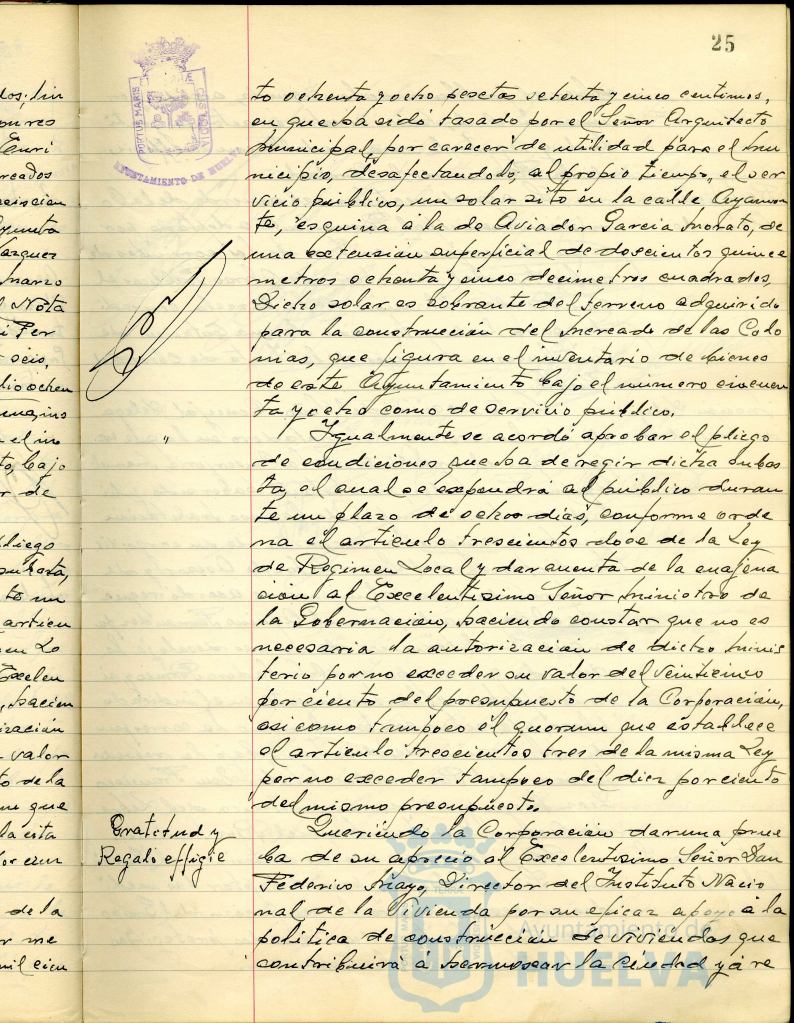 25
PORTUS MARIS
ET TERRE
CUSTODIA
AYUNTAMIENTO DE HUELVA
to ochenta y ocho pesetas setenta y cinco centimos,
en que ha sido tasado por el Señor Arquitecto
Municipal, por carecer de utilidad para el Mu
nicipio, desafectandolo, al propio tiempo, el ser
vicio público, un solar sito en la calle Ayamon
te, esquina á la de Aviador Garcia Morato, de
una extensión superficial de doscientos quince
metros ochenta y cinco decimetros cuadrados.
Dicho solar es sobrante del terreno adquirido
para la construcción del Mercado de las Colo
nias, que figura en el inventario de bienes
de este Ayuntamiento bajo el número cincuen
ta y ocho como de servicio público.
" Igualmente se acordó aprobar el pliego
de condiciones que ha de regir dicha subas
ta, el cual se expondrá al público duran
te un plazo de ochos dias, conforme orde
na el articulo trescientos doce de la Ley
de Régimen Local y dar cuenta de la enajena
ción al Excelentisimo Señor Ministro de
la Gobernación, haciendo constar que no es
necesaria la autorización de dicho Minis
terio por no exceder su valor del veinticinco
por ciento del presupuesto de la Corporación,
asi como tampoco el quorum que establece
el articulo trescientos tres de la misma Ley
por no exceder tampoco del diez por ciento
del mismo presupuesto.
Gratitud y
Regalo effigie
Queriendo la Corporación dar una prue
ba de su aprecio al Excelentisimo Señor Don
Federico Mayo, Director del Instituto Nacio
nal de la Vivienda por su eficaz apoyo á la
politica de construcción de viviendas que
contribuirá á hermosear la ciudad y á re
Ayuntamiento de
HUELVA